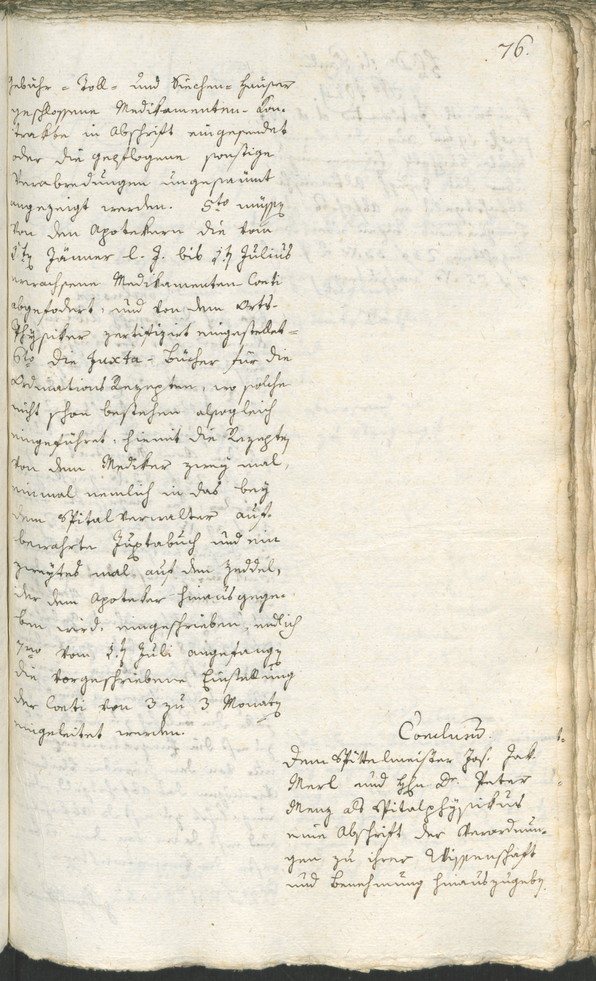 76.
gebühr- Toll- und Siechen-Häuser
geschlossene Medikamenten-Kon-
trakte in Abschrift eingesendet
oder die gepflogene sonstige
Verabredungen ungesäumt
angezeigt werden. 5to müssen
von den Apotekern die vom
1ten Jänner l. J. bis 1ten Julius
erwachsene Medikamenten-Conti
abgefodert, und von dem Orts-
Physiker zertifizirt eingestellet-
6to die Juxta-Bücher für die
Ordinations Rezepten, wo solche
nicht schon bestehen alsogleich
eingeführet, hiemit die Rezepten
von dem Mediker zwey mal,
einmal nemlich in das bey
dem Spitalverwalter auf-
bewahrte Juxtabuch und ein
zweytes mal auf den Zeddel,
der dem Apoteker hinausgege-
ben wird, eingeschrieben, endlich
7mo vom 1ten Juli angefangen
die vorgeschriebene Einstellung
der Conti von 3 zu 3 Monaten
eingeleitet werden.
Conclusum.
dem Spittelmeister Jos. Jak.
Merl und Hhn Dr. Peter
Menz als Spitalphysikus
eine Abschrift der Verordnun-
gen zu ihrer Wissenschaft
und Benehmung hinauszugeben.